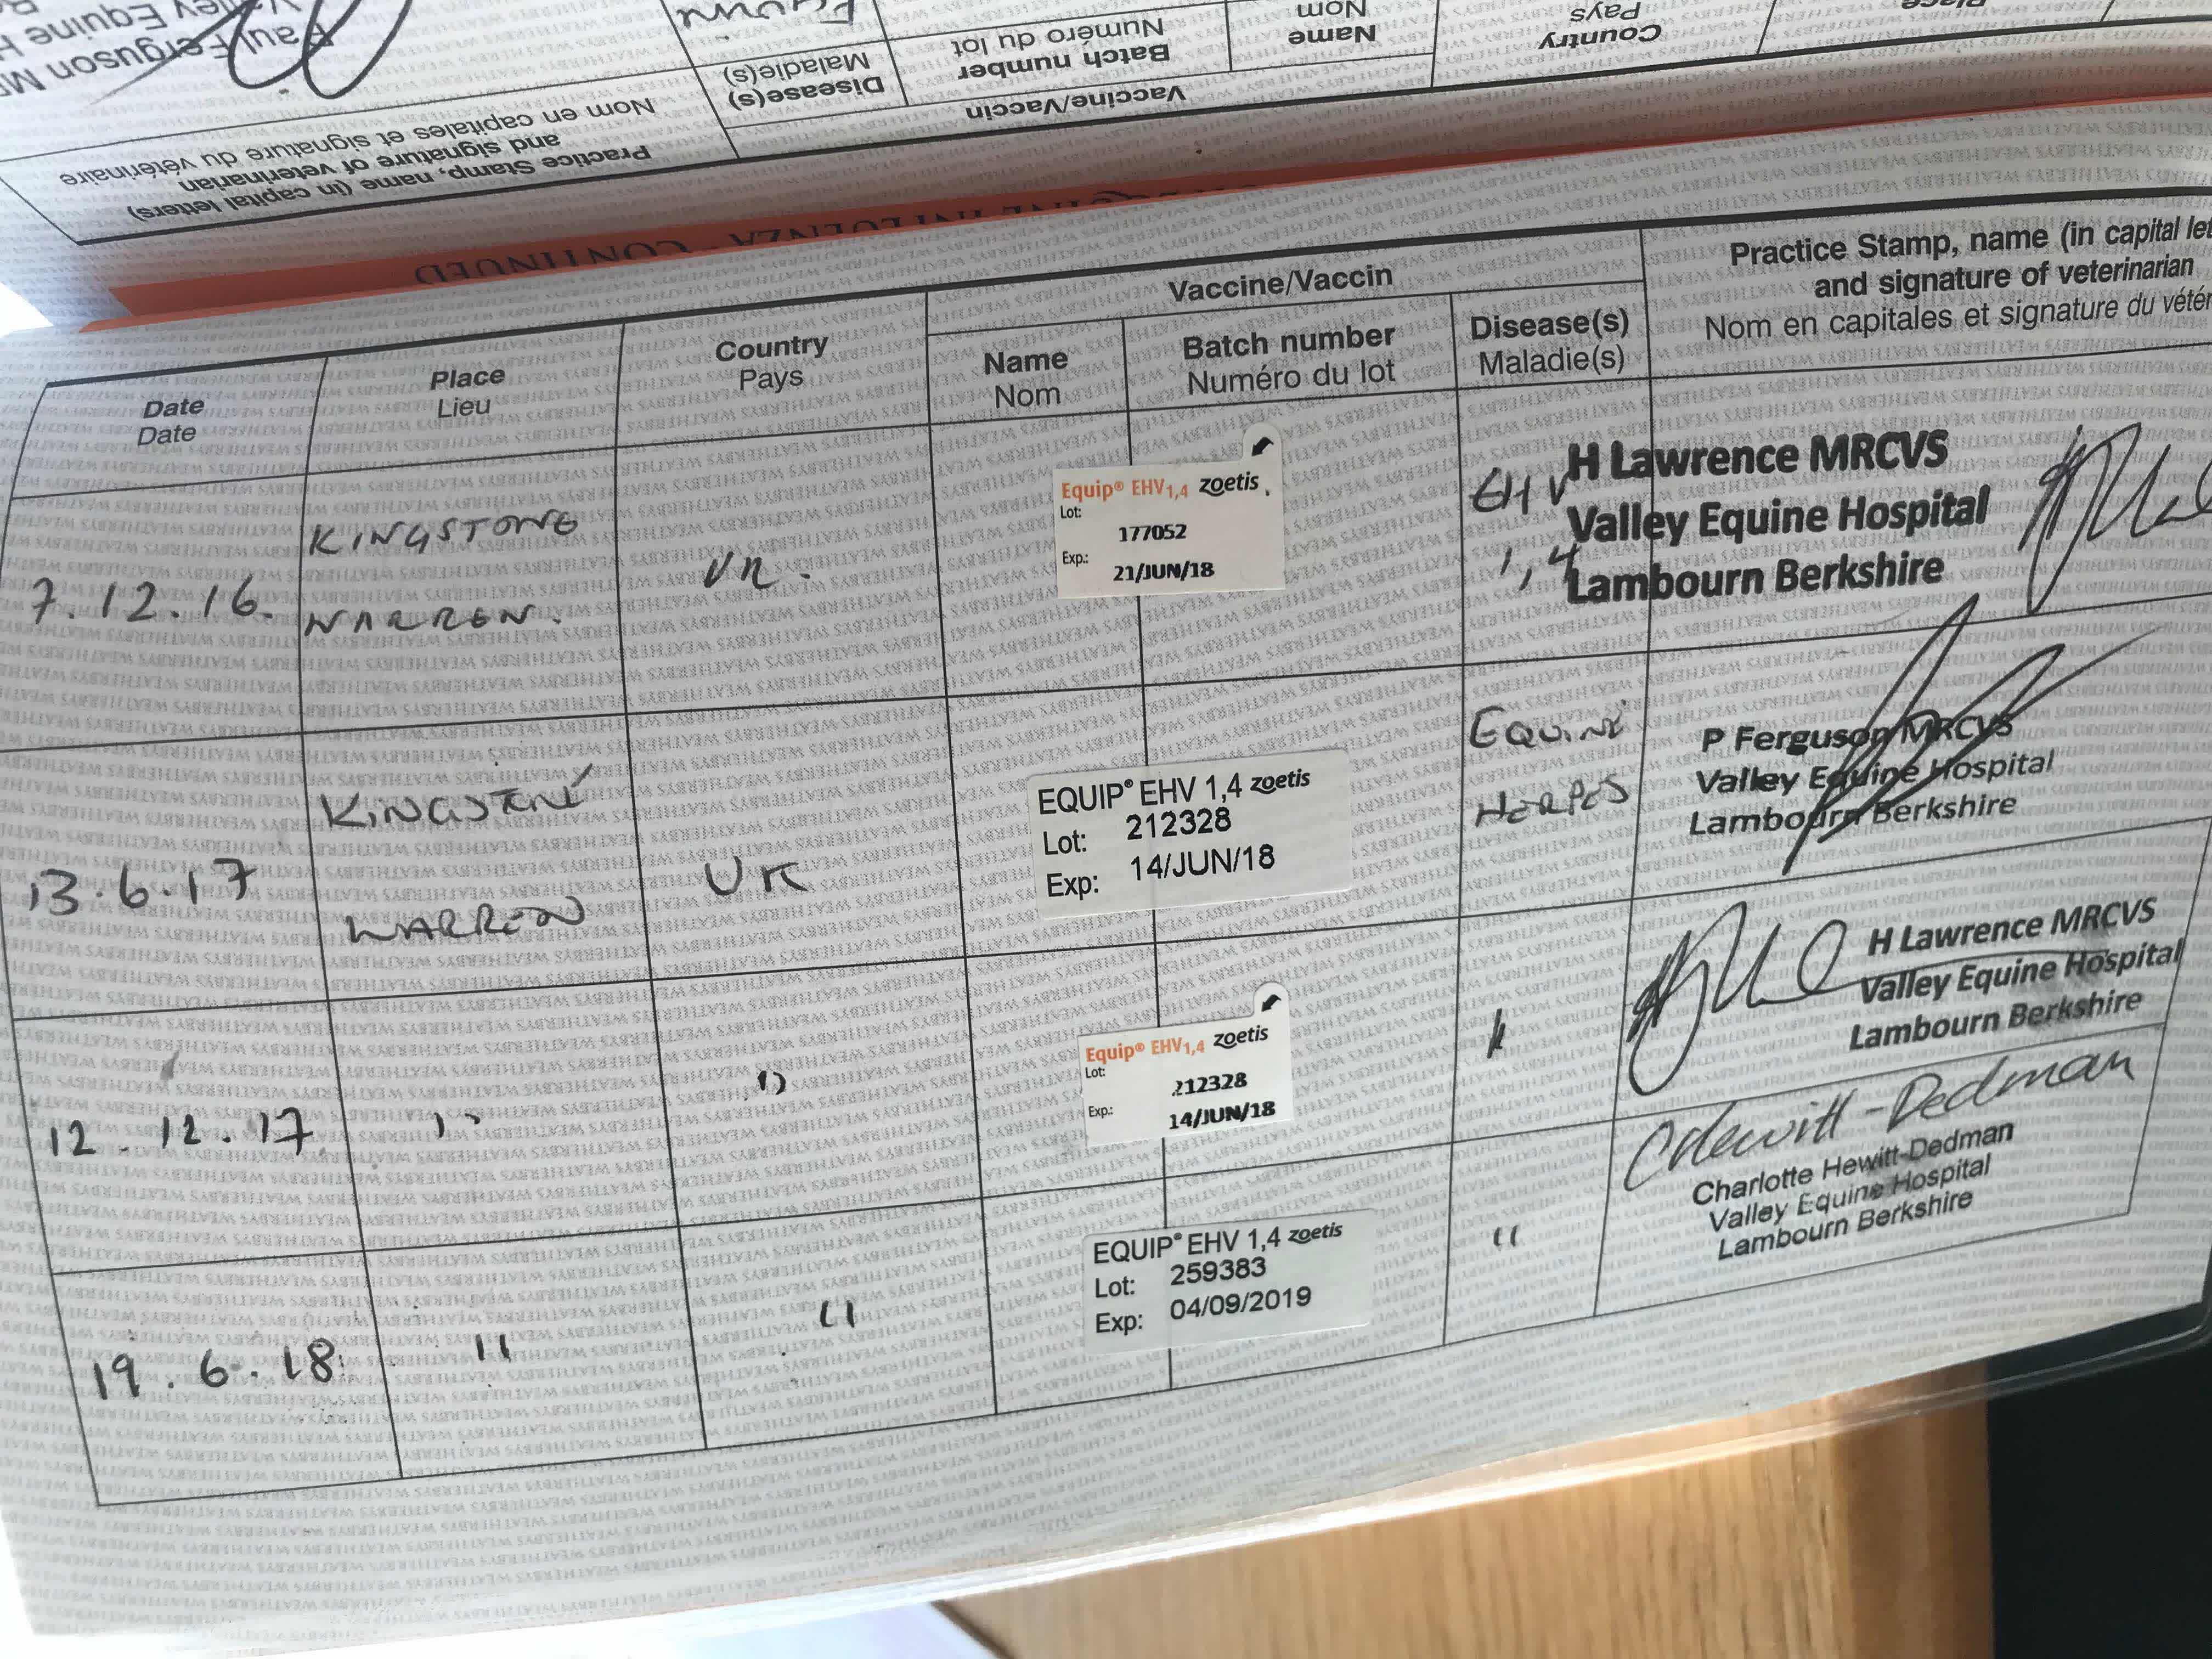 Paul Ferguson
Valley Equine
Practice Stamp, name (in capital letters)
and signature of veterinarian
Nom en capitales et signature du vétérinaire
Vaccine/Vaccin
Disease(s)
Maladie(s)
Batch number
Numéro du lot
Name
Nom
Country
Pays
Place
EQUINE INFLUENZA - CONTINUED
Date
Date
Place
Lieu
Country
Pays
Vaccine/Vaccin
Name
Nom
Batch number
Numéro du lot
Disease(s)
Maladie(s)
Practice Stamp, name (in capital let
and signature of veterinarian
Nom en capitales et signature du vétér
7.12.16.
KINGSTONE
WARREN.
UK.
Equip® EHV1,4 zoetis
Lot:
177052
Exp.:
21/JUN/18
EHV
1,4
H Lawrence MRCVS
Valley Equine Hospital
Lambourn Berkshire
13.6.17
KINGSTONE
WARREN
UK
EQUIP® EHV 1,4 zoetis
Lot: 212328
Exp: 14/JUN/18
EQUINE
HERPES
P Ferguson MRCVS
Valley Equine Hospital
Lambourn Berkshire
12.12.17
"
"
Equip® EHV1,4 zoetis
Lot:
212328
Exp.:
14/JUN/18
"
H Lawrence MRCVS
Valley Equine Hospital
Lambourn Berkshire
19.6.18
"
"
EQUIP® EHV 1,4 zoetis
Lot: 259383
Exp: 04/09/2019
"
C Hewitt-Dedman
Charlotte Hewitt-Dedman
Valley Equine Hospital
Lambourn Berkshire